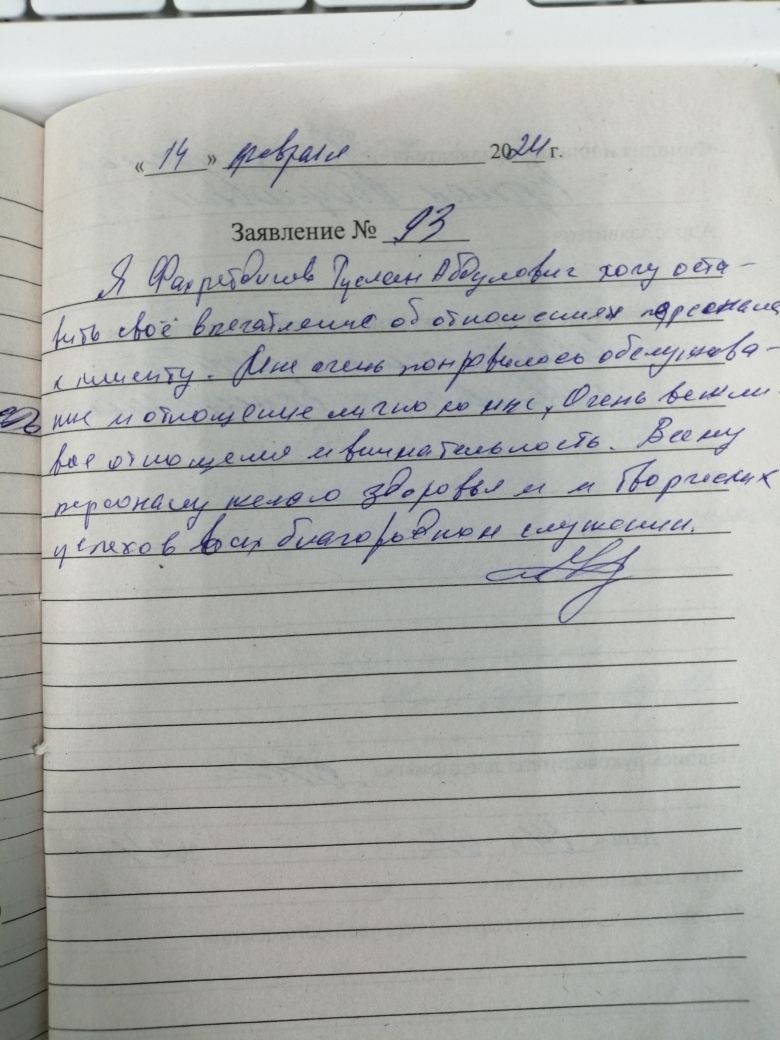 « 14 » февраля 2024 г.
Заявление № 93
Я Фахретдинов Руслан Абдулович хочу оста-
вить своё впечатление об отношениях персонала
к клиенту. Мне очень понравилось обслужива-
ние и отношение лично ко мне, Очень вежли-
вое отношения и внимательность. Всему
персоналу желаю здоровья и и творческих
успехов в их благородном служении.